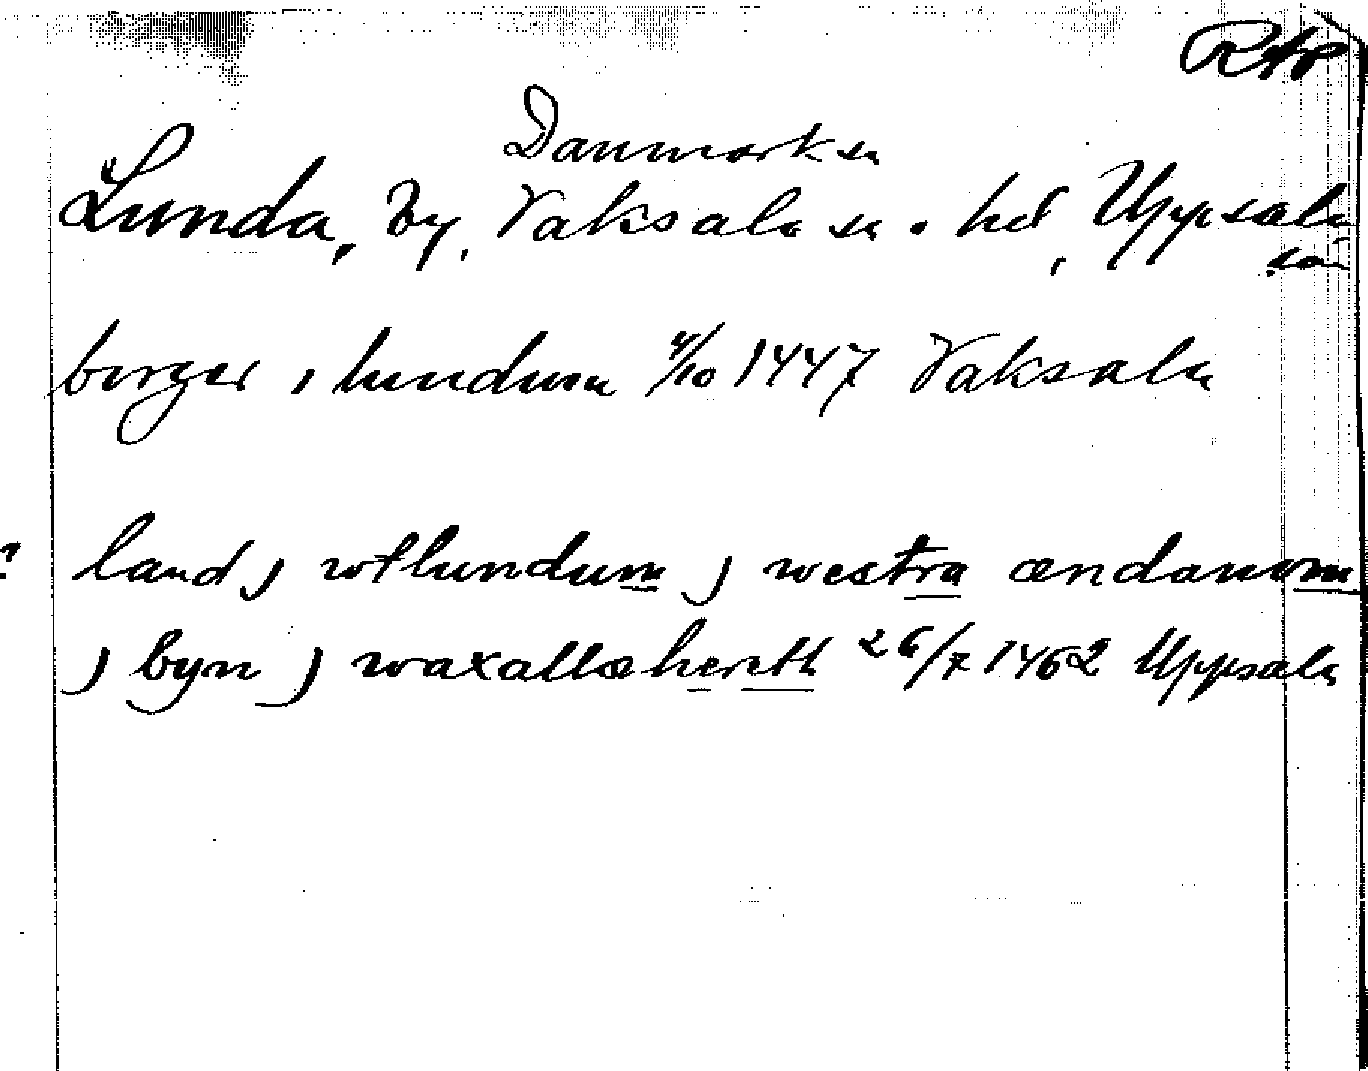 RAp
Danmarks sn
Lunda, by, Vaksala sn o. hd, Uppsala
län
birger i lundum 4/10 1447 Vaksala
? land j wtlundum j westra ændanom
j byn j waxallæherth 26/7 1462 Uppsala